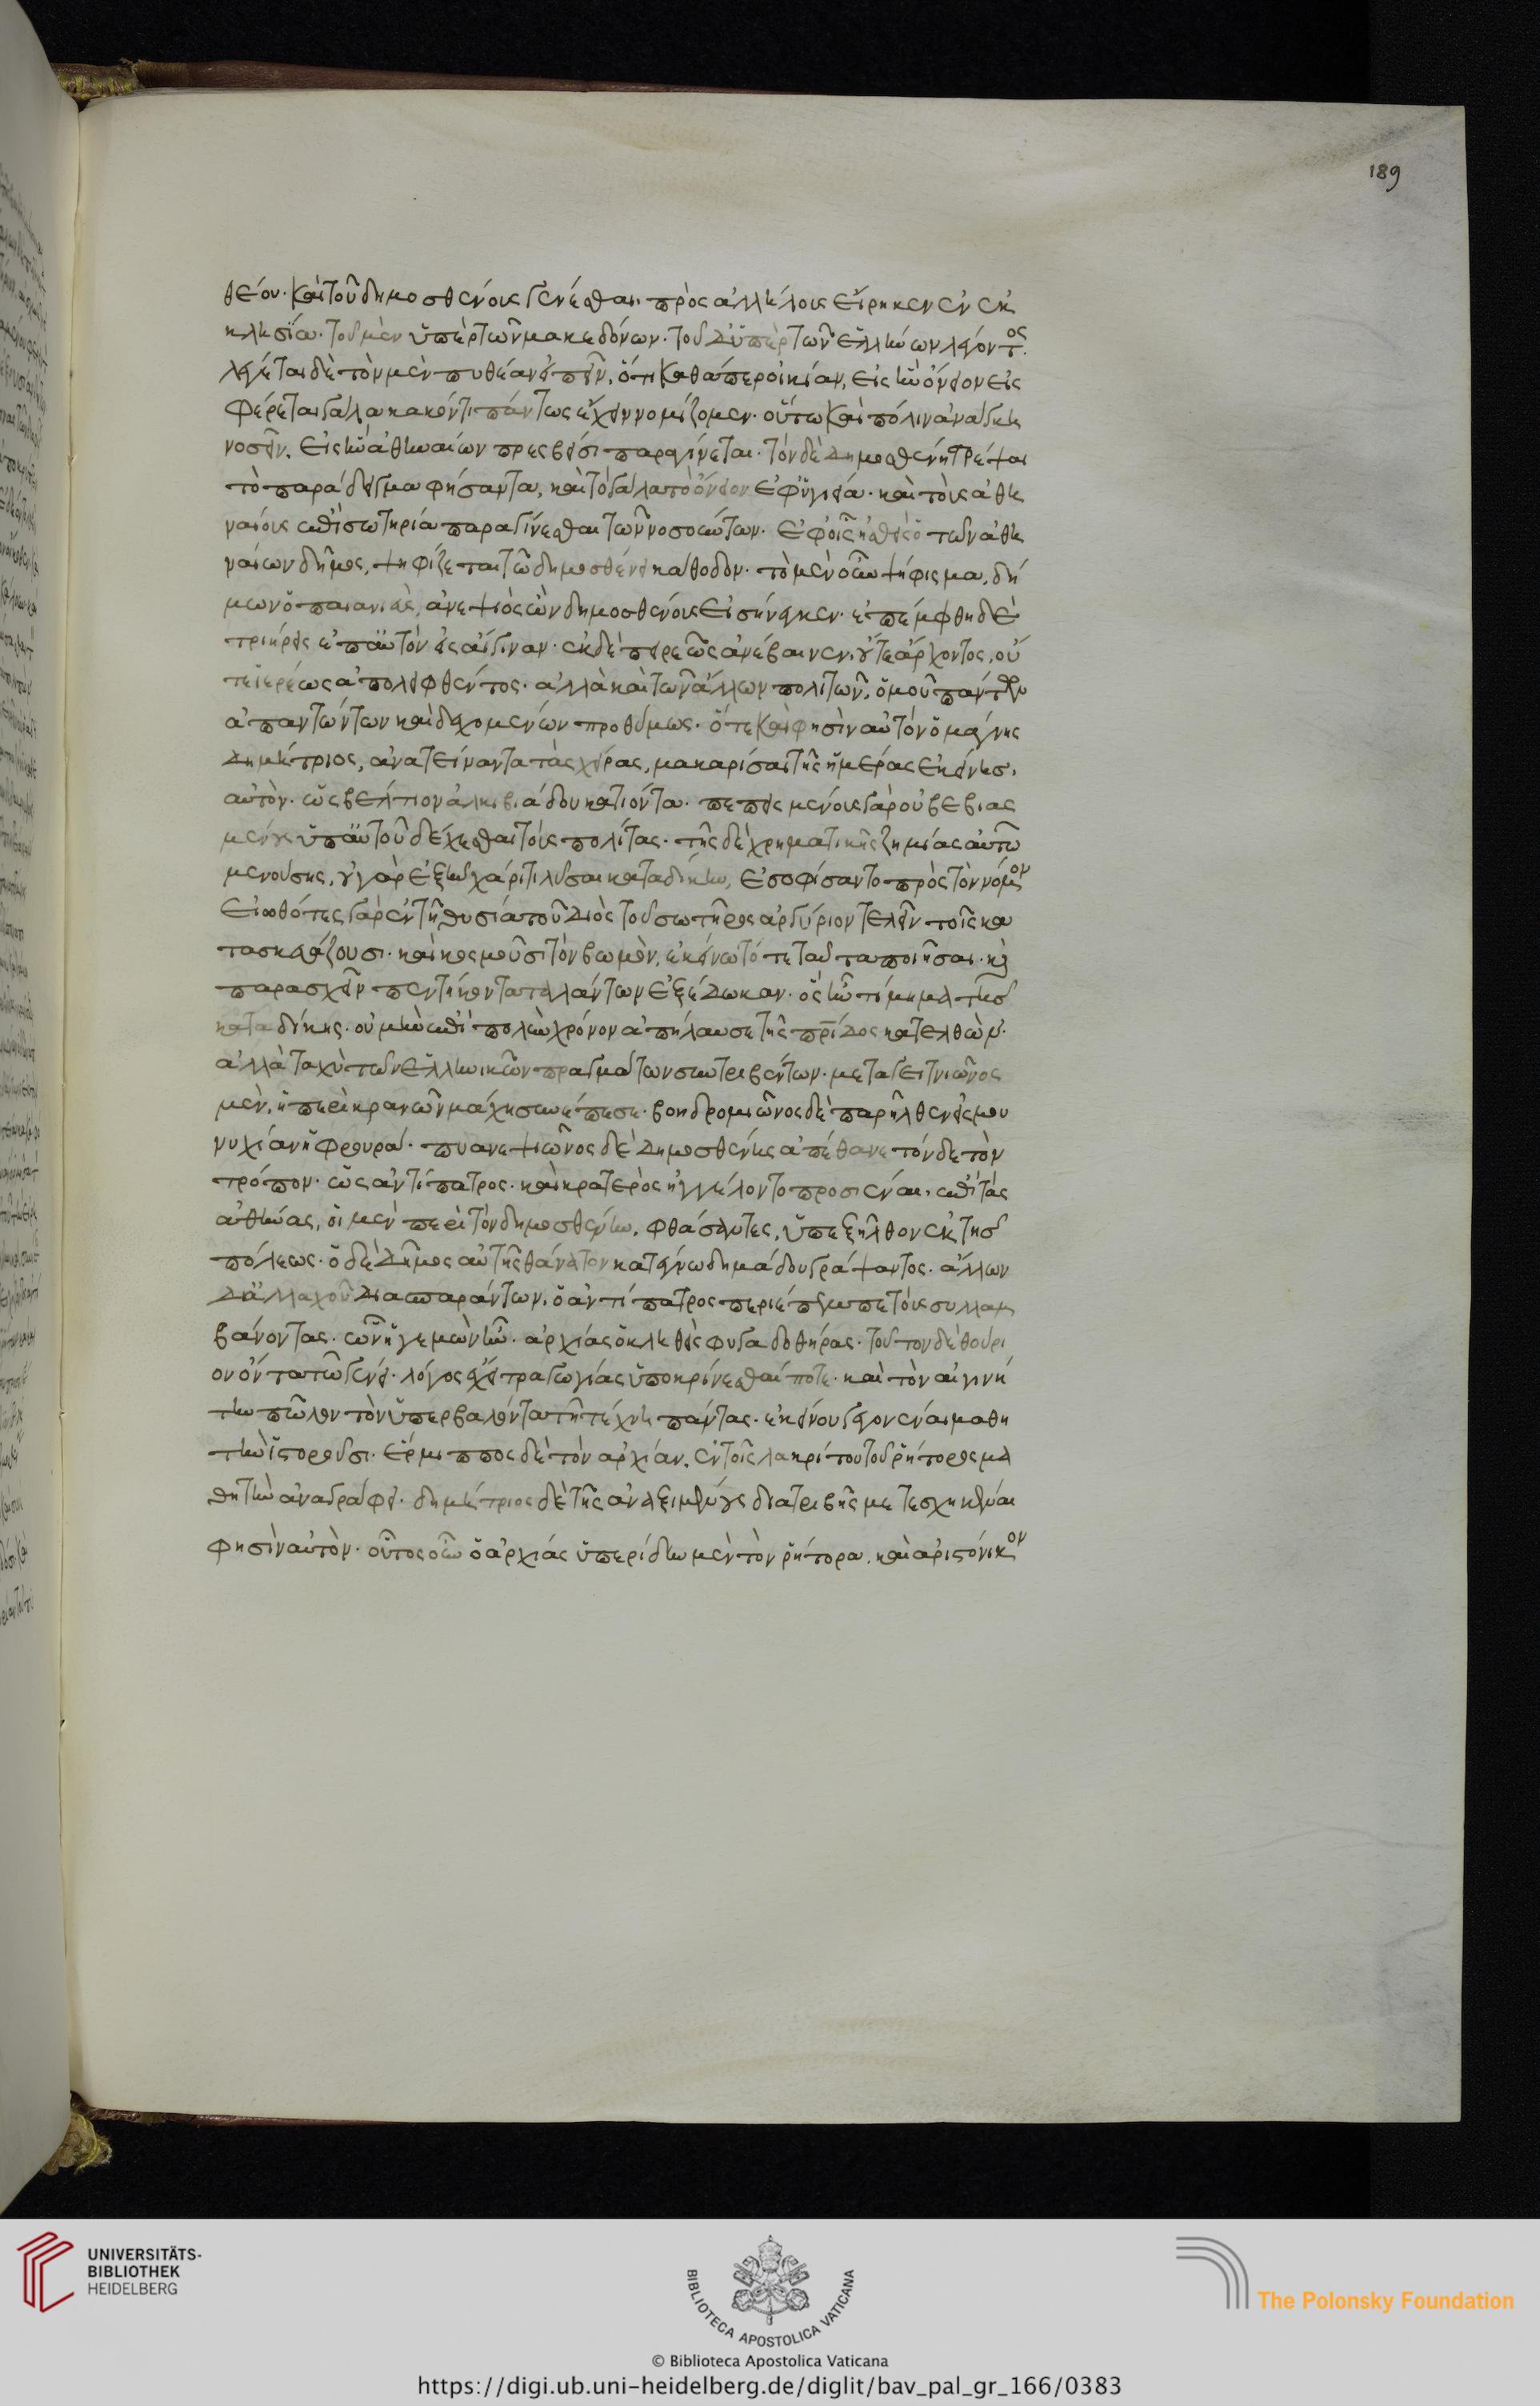 θέου· καὶ τοῦ δημοσθένους γενέσθαι πρὸς ἀλλήλους εἴρηκεν ἐν ἐκ
κλησίᾳ· τοῦ μὲν ὑπὲρ τῶν μακεδόνων· τοῦ δ' ὑπὲρ τῶν ἑλλήνων λέγοντος.
λέγεται δὲ τὸν μὲν πυθέαν εἰπεῖν, ὅτι καθάπερ οἰκίαν, εἰς ἣν ὄνειον εἰς
φέρεται γάλα κακόν τι πάντως ἔχειν νομίζομεν· οὕτω καὶ πόλιν ἀνάγκη
νοσεῖν, εἰς ἣν ἀθηναίων πρεσβεία παραγίνεται· τὸν δὲ δημοσθένη τρέψαι
τὸ παράδειγμα φήσαντα, καὶ τὸ γάλα τὸ ὄνειον ἐφ' ὑγιεία· καὶ τοὺς ἀθη
ναίους ἐπὶ σωτηρία παραγίνεσθαι τῶν νοσούντων· ἐφ' οἷς ἡσθεὶς ὁ τῶν ἀθη
ναίων δῆμος, ψηφίζεται τῶ δημοσθένει κάθοδον· τὸ μὲν οὖν ψήφισμα, δή
μων ὁ παιανιεὺς, ἀνεψιὸς ὢν δημοσθένους εἰσήνεγκεν· ἐπέμφθη δὲ
τριήρης ἐπ' αὐτὸν εἰς αἴγιναν· ἐκ δὲ πειρεῶς ἀνέβαινεν, οὔτε ἄρχοντος, οὔ
τε ἱερέως ἀπολειφθέντος· ἀλλὰ καὶ τῶν ἄλλων πολιτῶν, ὁμοῦ πάντων
ἀπαντώντων καὶ δεχομένων προθύμως· ὅτε καὶ φησὶν αὐτὸν ὁ μάγνης
δημήτριος, ἀνατείναντα τὰς χεῖρας, μακαρίσαι τῆς ἡμέρας ἐκείνης
αὐτὸν· ὡς βέλτιον ἀλκιβιάδου κατιόντα· πεπεισμένους γὰρ οὐ βεβιας
μένους ὑπ' αὐτοῦ δέχεσθαι τοὺς πολίτας· τῆς δὲ χρηματικῆς ζημίας αὐτῶ
μενούσης, οὐ γὰρ ἐξῆν χάριτι λῦσαι καταδίκην, ἐσοφίσαντο πρὸς τὸν νόμον
εἰωθότες γὰρ ἐν τῆ θυσία τοῦ διὸς τοῦ σωτῆρος ἀργύριον τελεῖν τοῖς κα
τασκευάζουσι· καὶ κοσμοῦσι τὸν βωμὸν, ἐκείνω τότε ταῦτα ποιῆσαι· καὶ
παρασχεῖν πεντήκοντα ταλάντων ἐξέδωκαν· ὅσον ἦν τίμημα τῆς
καταδίκης· οὐ μὴν ἐπὶ πολὺν χρόνον ἀπήλαυσε τῆς πρίδος κατελθὼν·
ἀλλὰ ταχὺ τῶν ἑλληνικῶν πραγμάτων συντριβέντων· μεταγειτνιῶνος
μὲν, ἡ περὶ κρανῶνα μάχη συνέπεσε· βοηδρομιῶνος δὲ παρῆλθεν εἰς μου
νυχίαν ἡ φρουρά· πυανεψιῶνος δὲ δημοσθένης ἀπέθανε τόνδε τὸν
τρόπον· ὡς ἀντίπατρος· καὶ κρατερὸς ἠγγέλλοντο προσιέναι ἐπὶ τὰς
ἀθήνας, οἱ μὲν περὶ τὸν δημοσθένην, φθάσαντες, ὑπεξῆλθον ἐκ τῆς
πόλεως· ὁ δὲ δῆμος αὐτῆς θάνατον κατέγνω δημάδου γράψαντος· ἄλλων
δ' ἀλλαχοῦ διασπαρέντων, ὁ ἀντίπατρος περιέπεμπε τοὺς συλλαμ
βάνοντας· ὧν ἡγεμὼν ἦν· ἀρχίας ὁ κληθεὶς φυγαδοθήρας· τοῦτον δὲ θούρι
ον ὄντα τῶ γένει· λόγος ἔχει τραγωγίας ὑποκρίνεσθαί ποτε· καὶ τὸν αἰγινή
την πῶλον τὸν ὑπερβαλόντα τῆ τέχνη πάντας· ἐκείνου γεγονέναι μαθη
τὴν ἱστοροῦσι· ἕρμιππος δὲ τὸν ἀρχίαν, ἐν τοῖς λακρίτου τοῦ ῥήτορος μα
θητὴν ἀναγράφει· δημήτριος δὲ τῆς ἀναξιμένους διατριβῆς μετεσχηκέναι
φησὶν αὐτὸν· οὗτος οὖν ὁ ἀρχίας ὑπερίδην μὲν τὸν ῥήτορα, καὶ ἀριστόνικον
189
UNIVERSITÄTS-
BIBLIOTHEK
HEIDELBERG
BIBLIOTECA APOSTOLICA VATICANA
The Polonsky Foundation
© Biblioteca Apostolica Vaticana
https://digi.ub.uni-heidelberg.de/diglit/bav_pal_gr_166/0383